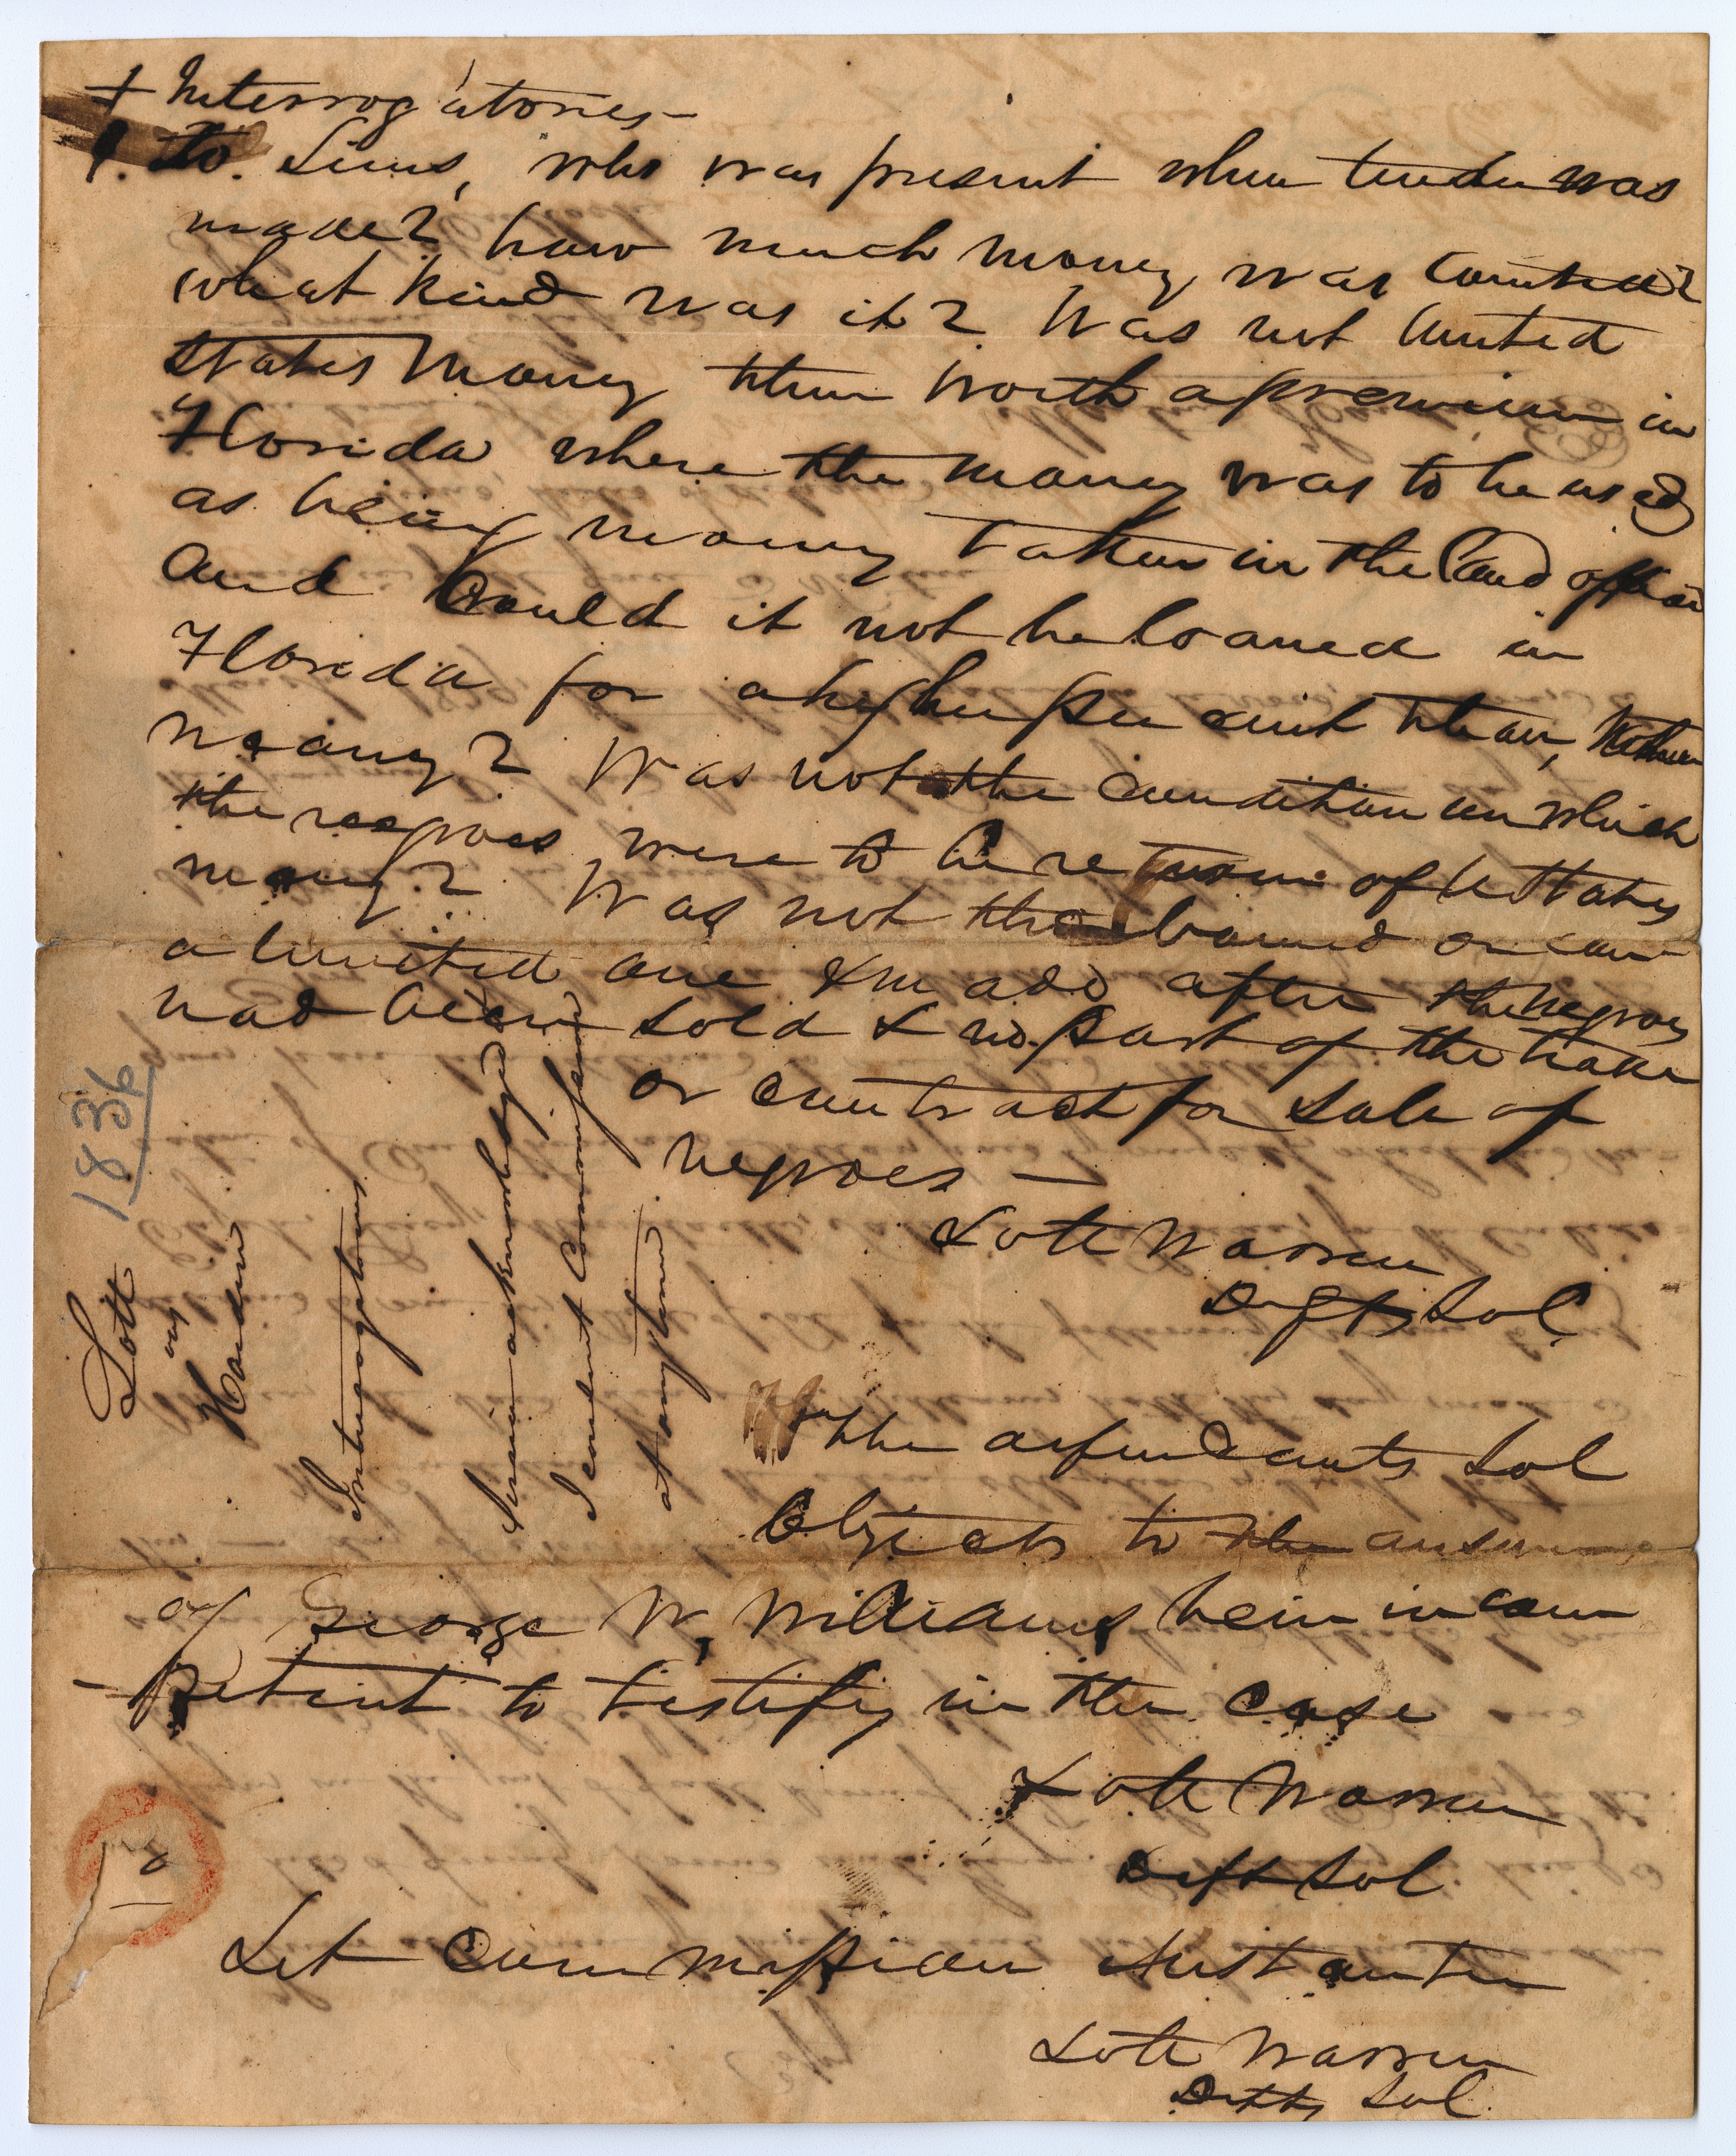 + Interrogatories –
1. to. Sims, who was present when tender was
made? how much money was counted?
what kind was it? Was not United
States Money then worth a premium in
Florida where the money was to be used
as being money taken in the Land office
and Could it not be loaned in
Florida for a higher per cent than,
money? Was not the condition on which
the negroes were to be return of U States
money? Was not the bound or con-
a limited one & made after the negroes
had been sold & no part of the trade
or contract for sale of
negroes –
Lott Warren
Defts Sol
The defendants Sol
Objects to the answer
of George W. Williams bein incom
-petent to testify in the case
Lott Warren
Deft Sol
Let Commission instanter
Lott Warren
Deft Sol.
1836
Lott
vs
Harden
Interrogatories
Service acknowledged
I consent Commissions
at any time